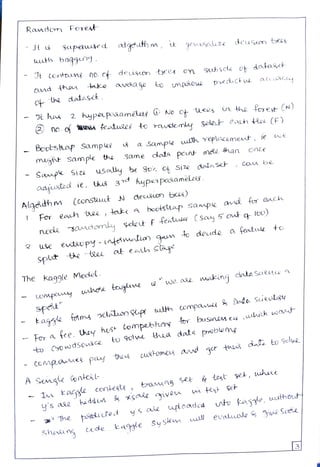 Random Forest
- It is supervised algorithm, it generalize decision trees
with bagging.
- It contains no. of decision trees on subsets of dataset
and then take average to improve predictive accuracy
of the dataset.
- It has 2 hyperparameters ① No of trees in the forest (N)
② no of features to randomly select each tree (F)
- Bootstrap Sampler is a sample with replacement, ie we
might sample the same data point more than once
- Sample Size usually be 80% of size dataset, can be
adjusted ie, this 3rd hyperparameter.
Algorithm (construct N decision trees)
1 For each tree, take a bootstrap sample and for each
node randomly select F features (say 5 out of 100)
2 use entropy-information gain to decide a feature to
split the tree at each stage
The Kaggle Model.
- company whose tagline is "we are making data science a
sport"
- Kaggle forms relationships with companies & Data Scientists
- For a fee, they host competitions for businesses which want
to crowdsource to solve their data problems
- companies pay their customers and get their data to solve.
A Single Contest-
- In Kaggle contests, training set & test set, where
y's are hidden & x's are given in test set
- The predicted y's are uploaded into Kaggle, without
sharing code Kaggle System will evaluate & give Score
3